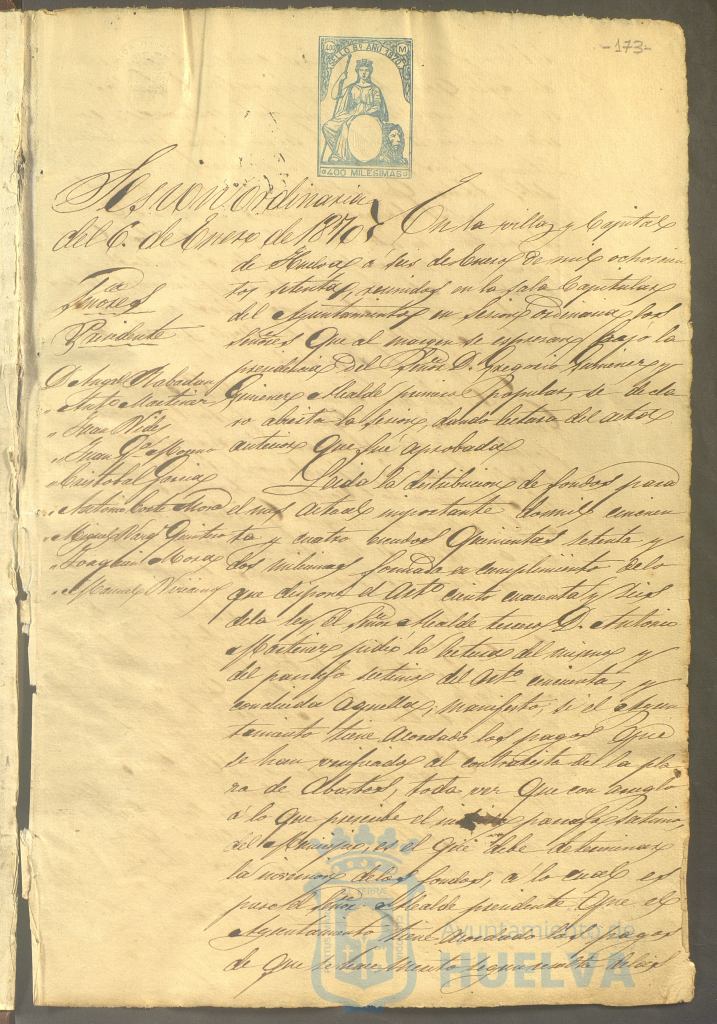 -173-
SELLO 8º AÑO 1870
400 M
400 MILESIMAS
Sesion ordinaria
del 6. de Enero de 1870
Sres
Presidente
D. Angel Rabadan
" Antº Martinez
" Juan
" Juan Gª Moreno
" Cristobal Garcia
" Antonio Corte Mora
" Miguel Quintero
" Joaquin Mora
" Manuel
En la villa y Capital
de Huelva á seis de Enero de mil ochocien
tos setenta, reunidos en la Sala Capitular
del Ayuntamiento en sesion ordinaria los
Señores que al margen se espresan bajo la
presidencia del Señor D. Gregorio Gimenez y
Gimenez Alcalde primero popular, se decla
ro abierta la sesion, dando lectura del acta
anterior que fué aprobada
Leida la distribucion de fondos para
el mes actual importante dos mil cincuen
ta y cuatro escudos quinientas setenta y
dos milesimas formada en cumplimiento de lo
que dispone el Artº ciento cuarenta y seis
de la ley el Señor Alcalde tercero D. Antonio
Martinez pidió la lectura del mismo y
del parrafo septimo del Artº cincuenta, y
concluida aquella, manifestó, si el Ayun
tamiento tiene acordado los pagos que
se han verificado al contratista de la pla
za de Abastos, toda vez que con arreglo
á lo que prescribe el parrafo septimo,
del Municipio, es el que debe determinar
la inversion de los fondos, á lo cual es
puso el Señor Alcalde presidente que el
Ayuntamiento tiene acordado los pagos
de que se hace merito segun resulta de las
Ayuntamiento de
HUELVA